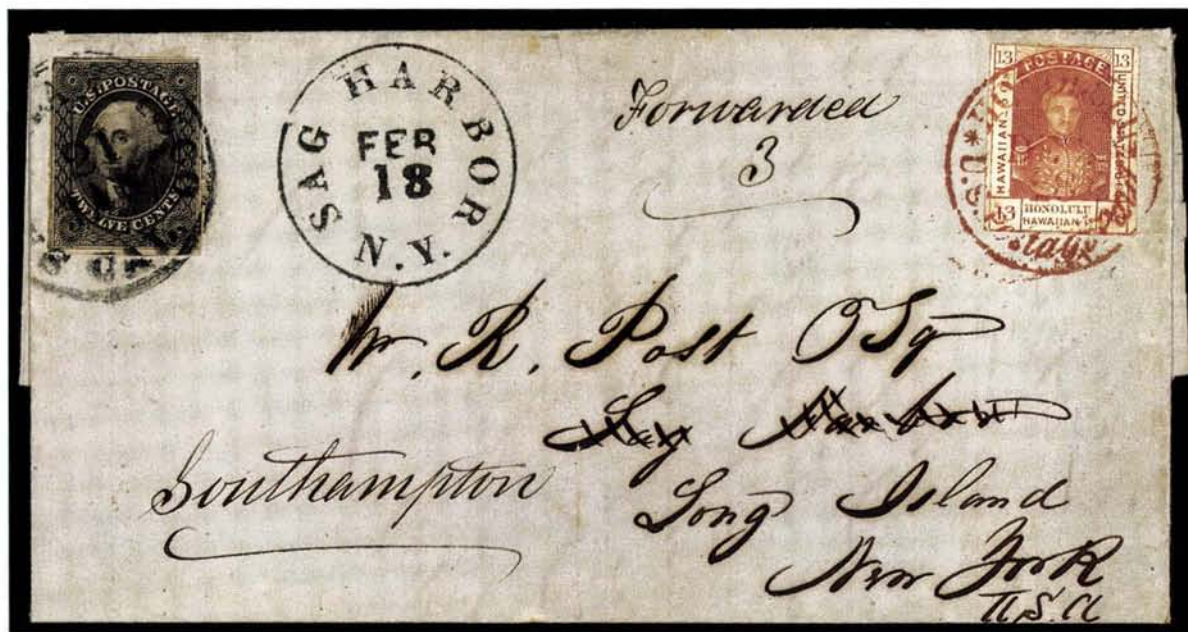 U.S. POSTAGE
TWELVE CENTS
SAG HARBOR
FEB
18
N.Y.
Forwarded
3
13 POSTAGE 13
HAWAIIAN
UNITED STATES
13 HONOLULU
HAWAIIAN
U.S.
Postage Paid
W. R. Post Esq
Sag Harbor
Southampton
Long Island
New York
U.S.A